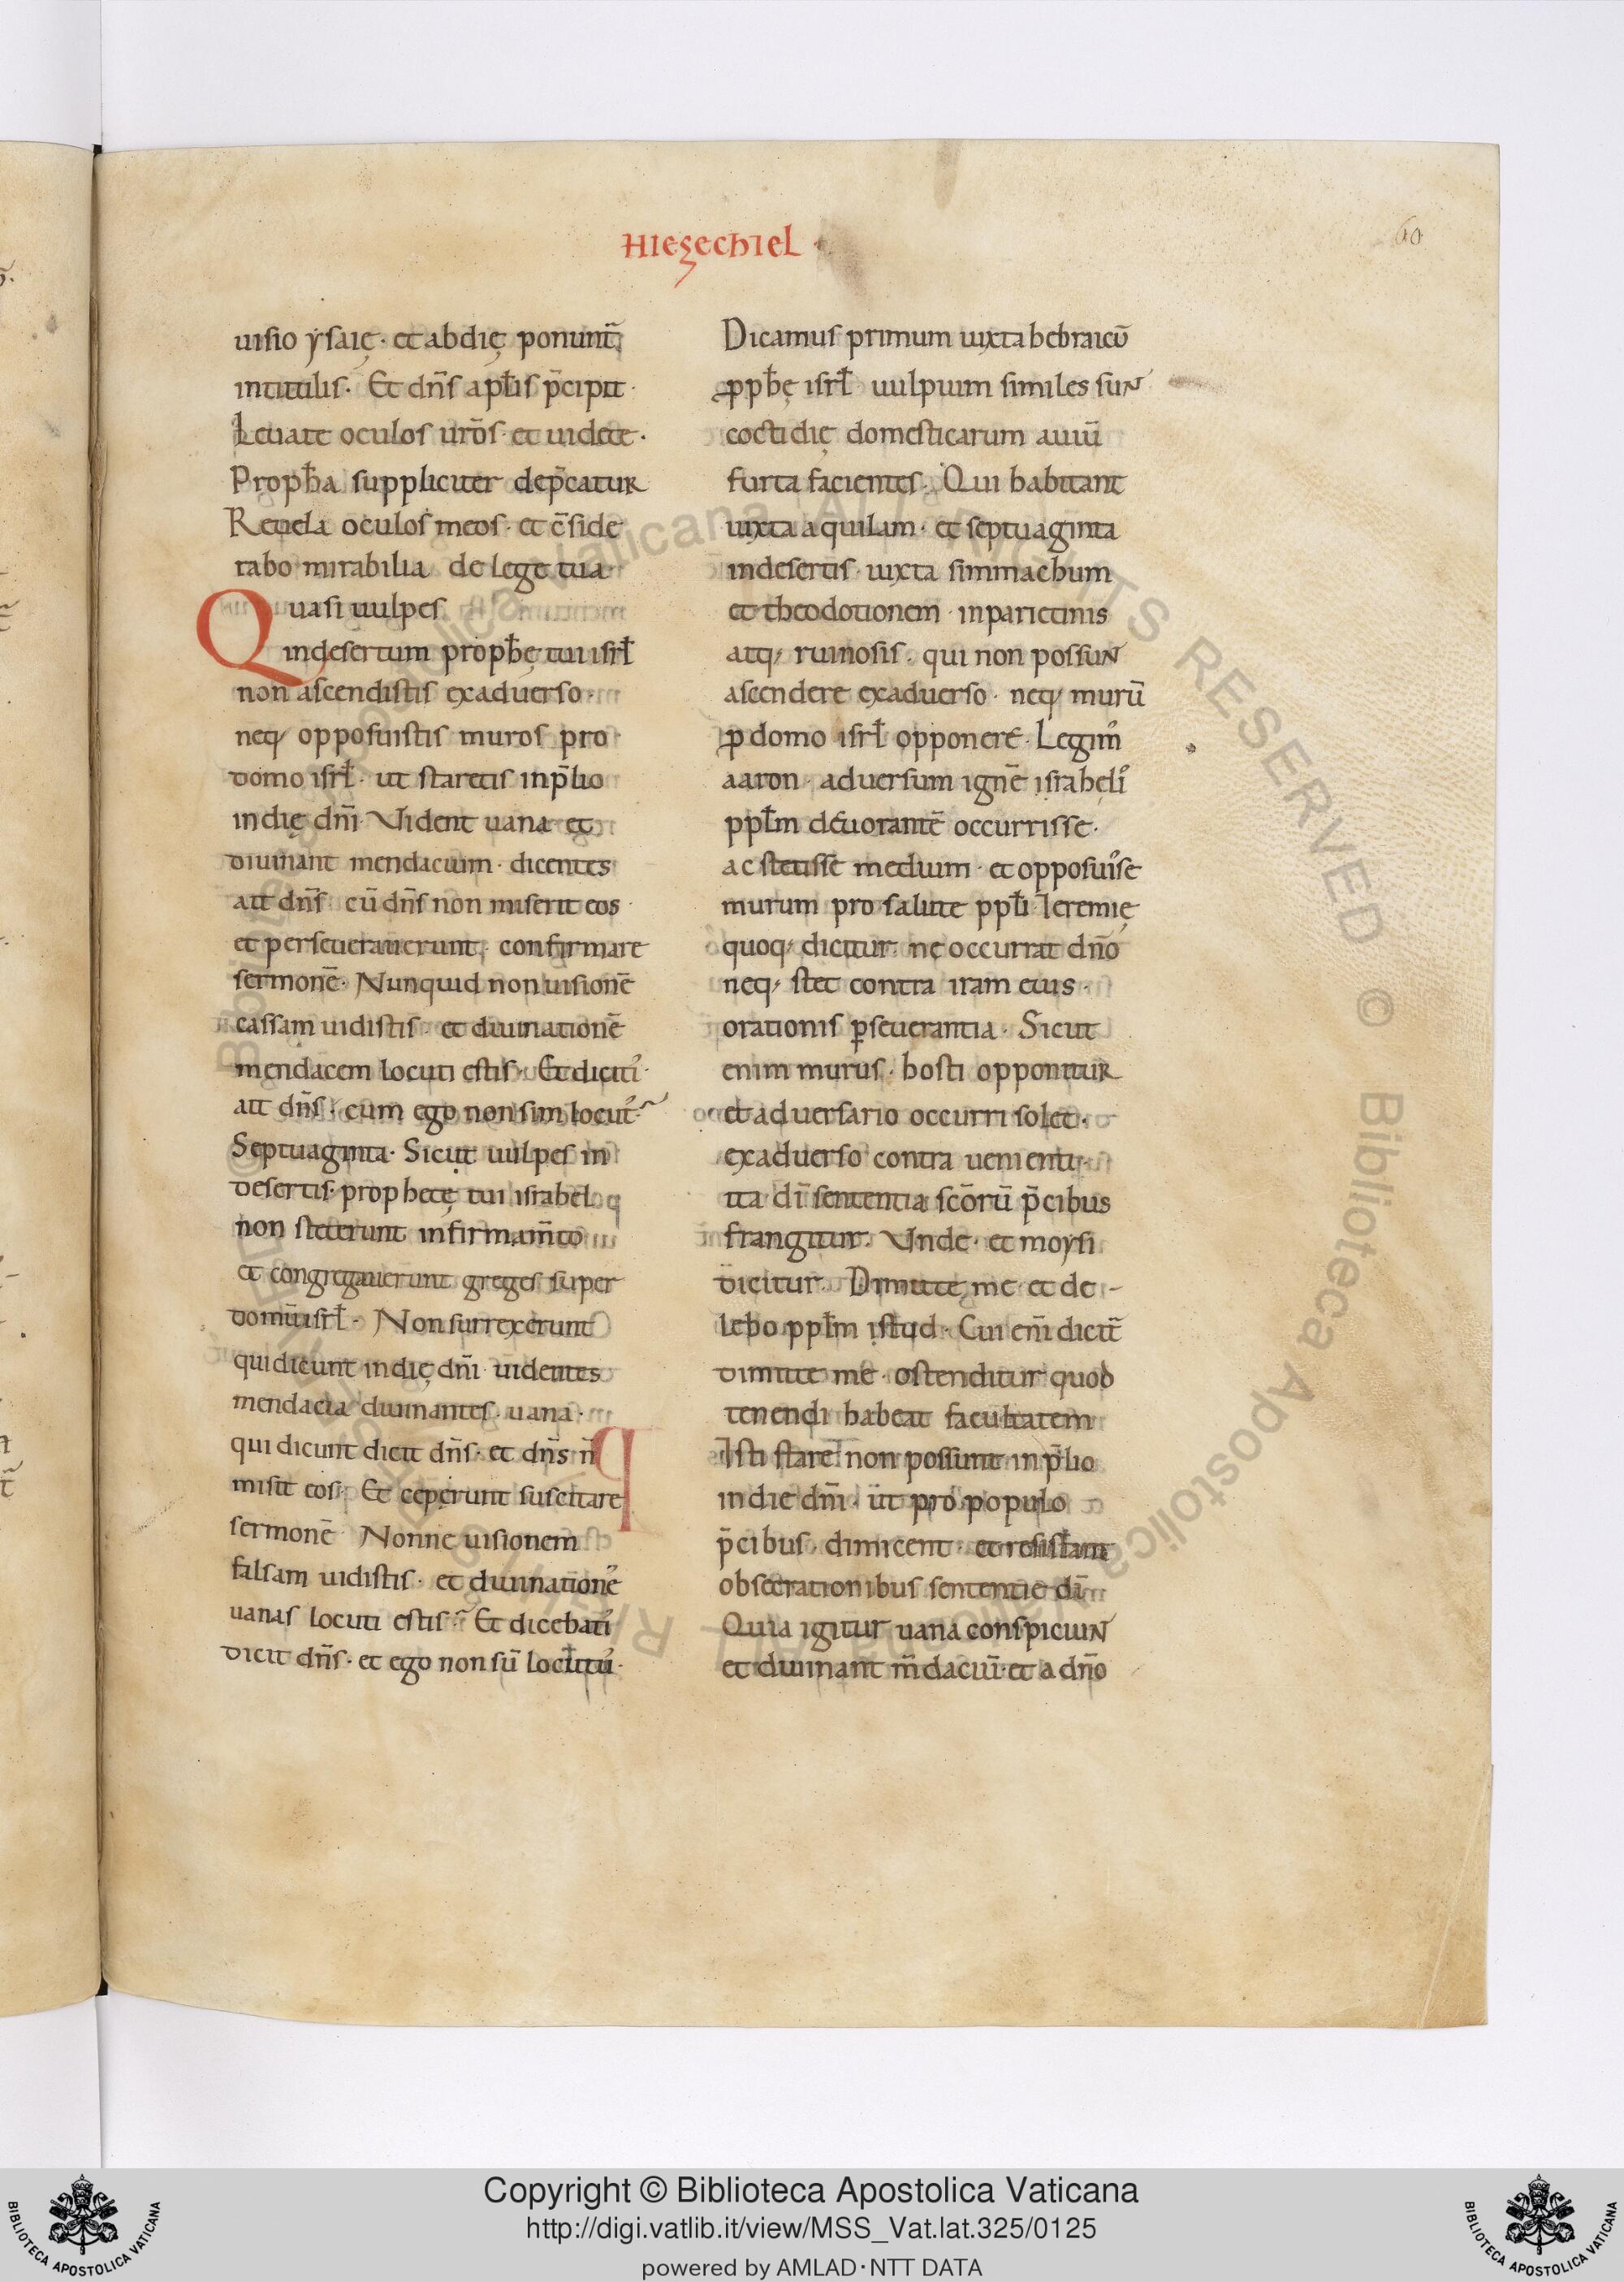 HIEZECHIEL ·
60
uisio ysaię · et abdię ponunt̄
intitulis · Et dn̄s apłis p̄cipit ·
Leuate oculos ur̄os · et uidete ·
Propħa suppliciter dep̄catur
Reuela oculos meos · et c̄side
rabo mirabilia de lege tua
Quasi uulpes
indesertum propħę tui isrł
non ascendistis exaduerso ·
neq; opposuistis muros pro
domo isrł · ut staretis inp̄lio
indię dn̄i · Vident uana et
diuinant mendacium · dicentes
ait dn̄s cū dn̄s non miserit eos ·
et perseuerauerunt · confirmare
sermonē · Nunquid non uisionē
cassam uidistis · et diuinationē
mendacem locuti estis · Et diciti᷒ ·
ait dn̄s · cum ego non sim locut᷒
Septuaginta · Sicut uulpes in
desertis · prophetę tui israhel
non steterunt infirmam̄to
et congregauerunt greges super
domū isrł · Non surrexerunt
qui dicunt indię dn̄i uidentes
mendacia diuinantes · uana ·
qui dicunt dicit dn̄s · et dn̄s n̄
misit eos · Et cęperunt suscitare
sermonē Nonne uisionem
falsam uidistis · et diuinationē᷒
uanas locuti estis Et dicebati᷒
dicit dn̄s · et ego non sū locutu᷒ ·
Dicamus primum iuxta hebraicū
ꝓpħę isrł uulpium similes sun
coctidię domesticarum auiū
furta facientes · Qui habitant
iuxta aquilam · et septuaginta
indesertis · iuxta simmachum
et theodotionem · inparietinis
atq; ruinosis · qui non possun
ascendere exaduerso · neq; murū
ꝓ domo isrł opponere · Legim᷒
aaron · aduersum ignē israhęli᷒
ppłm deuorantē occurrisse ·
ac stetisse medium · et opposui᷒se
murum pro salute ppłi · Ieremię
quoq; dicitur · ne occurrat dn̄o
neq; stet contra iram eius ·
orationis ꝑseuerantia · Sicut
enim murus · hosti opponitur
et aduersario occurri solet ·
exaduerso contra uenienti ·
ita dī sententia scōrū p̄cibus
frangitur · Vnde · et moysi
dicitur · Dimitte me et de -
lebo ppłm istud · Cui enī dicit̄
dimitte me · ostenditur quod
tenendi habeat facultatem
Isti stare non possunt in p̄lio
in die dn̄i · ut pro populo
p̄cibus · dimicent · et resistant
obsecrationibus sententię dī
Quia igitur uana conspiciun
et diuinant m̄daciū · et a dn̄o
Copyright © Biblioteca Apostolica Vaticana
http://digi.vatlib.it/view/MSS_Vat.lat.325/0125
powered by AMLAD·NTT DATA
BIBLIOTECA APOSTOLICA VATICANA
BIBLIOTECA APOSTOLICA VATICANA